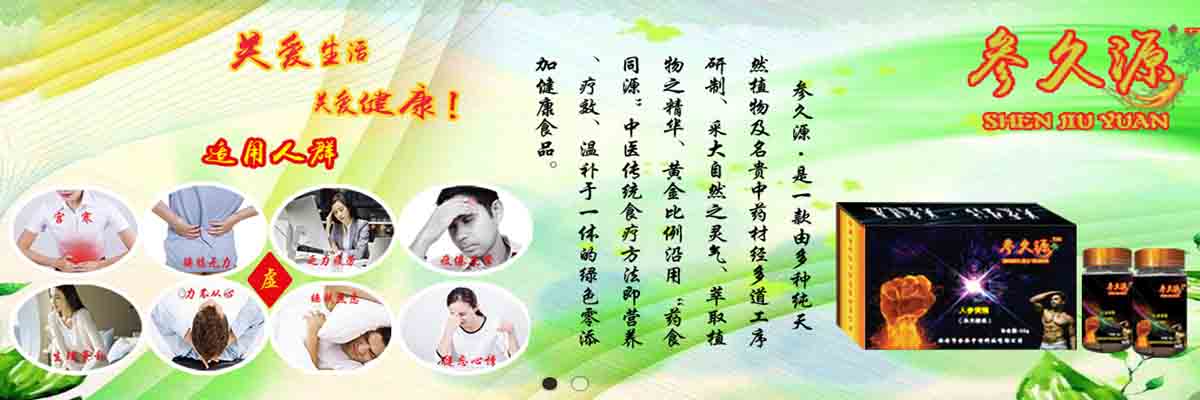 关爱生活
关爱健康！
适用人群
宫寒
腰膝无力
乏力疲劳
虚
力不从心
参久源·是一款由多种纯天
然植物及名贵中药材经多道工序
研制、采大自然之灵气、萃取植
物之精华、黄金比例沿用“药食
同源”中医传统食疗方法即营养
、疗效、温补于一体的绿色零添
加健康食品。
参久源
SHEN JIU YUAN
参久源
SHEN JIU YUAN